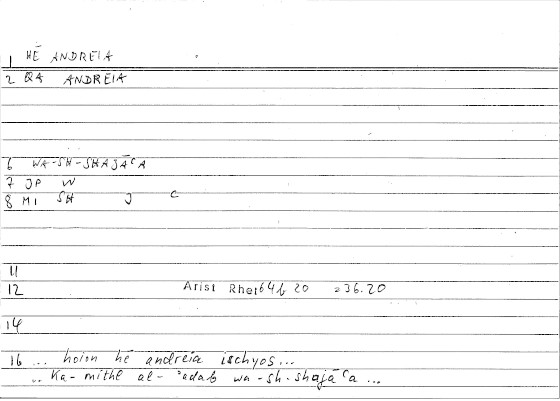 1 HĒ ANDREIA
2 QA ANDREIA
6 WA-SH-SHAJĀʿA
7 JP W
8 MI SH J C
11
12 Arist Rhet 64b 20 = 36.20
14
16 ... hoion hē andreia ischyos...
.. Ka-mithl al-ʾadab wa-sh-shajāʿa ...